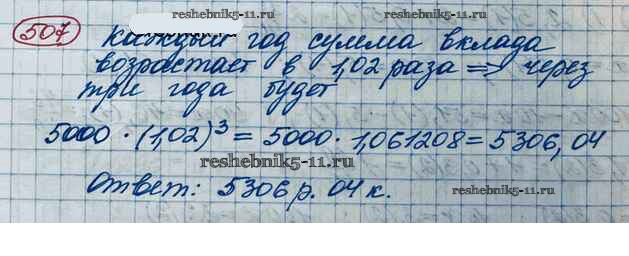 reshebnik5-11.ru
507 Каждый год сумма вклада
возрастает в 1,02 раза => через
три года будет
reshebnik5-11.ru
5000 · (1,02)³ = 5000 · 1,061208 = 5306,04
reshebnik5-11.ru
Ответ: 5306 р. 04 к.
reshebnik5-11.ru